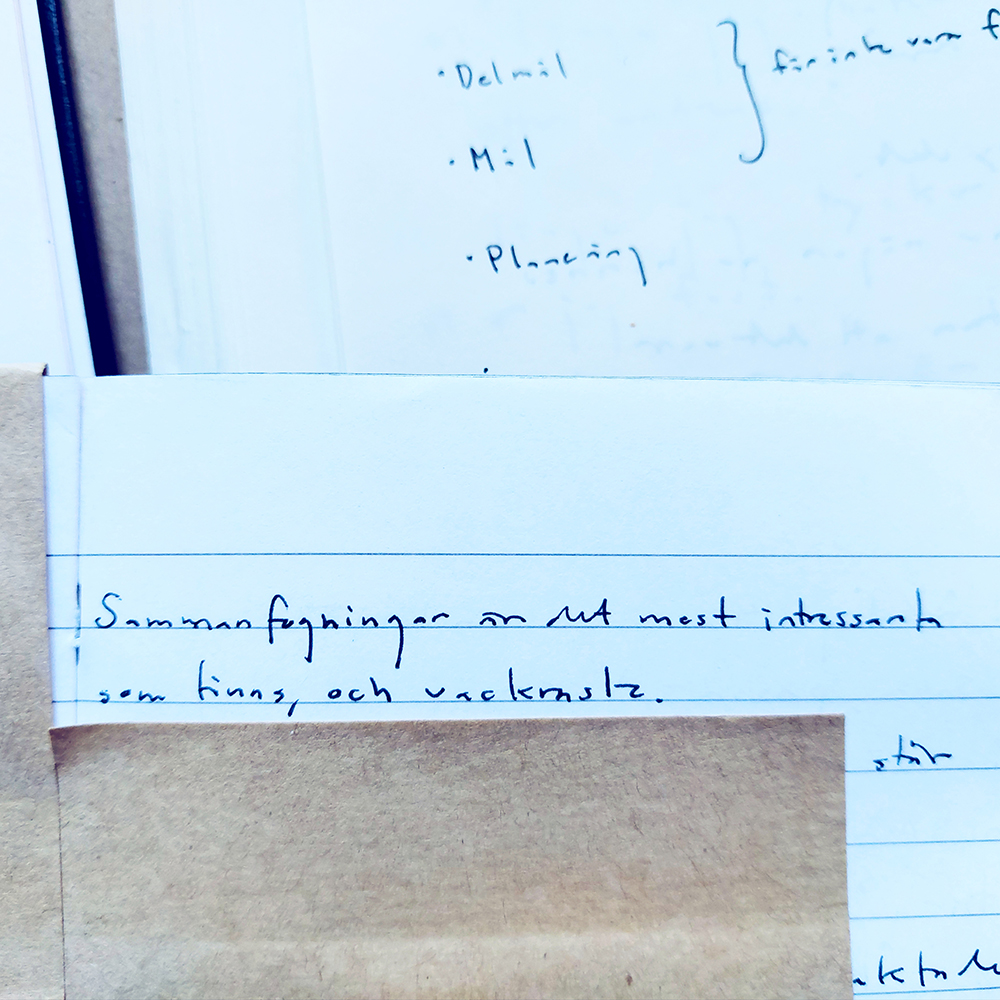 · Delmål
för inte vara
· Mål
· Planering
Sammanfogningar är det mest intressanta
som finns, och vackraste.
står